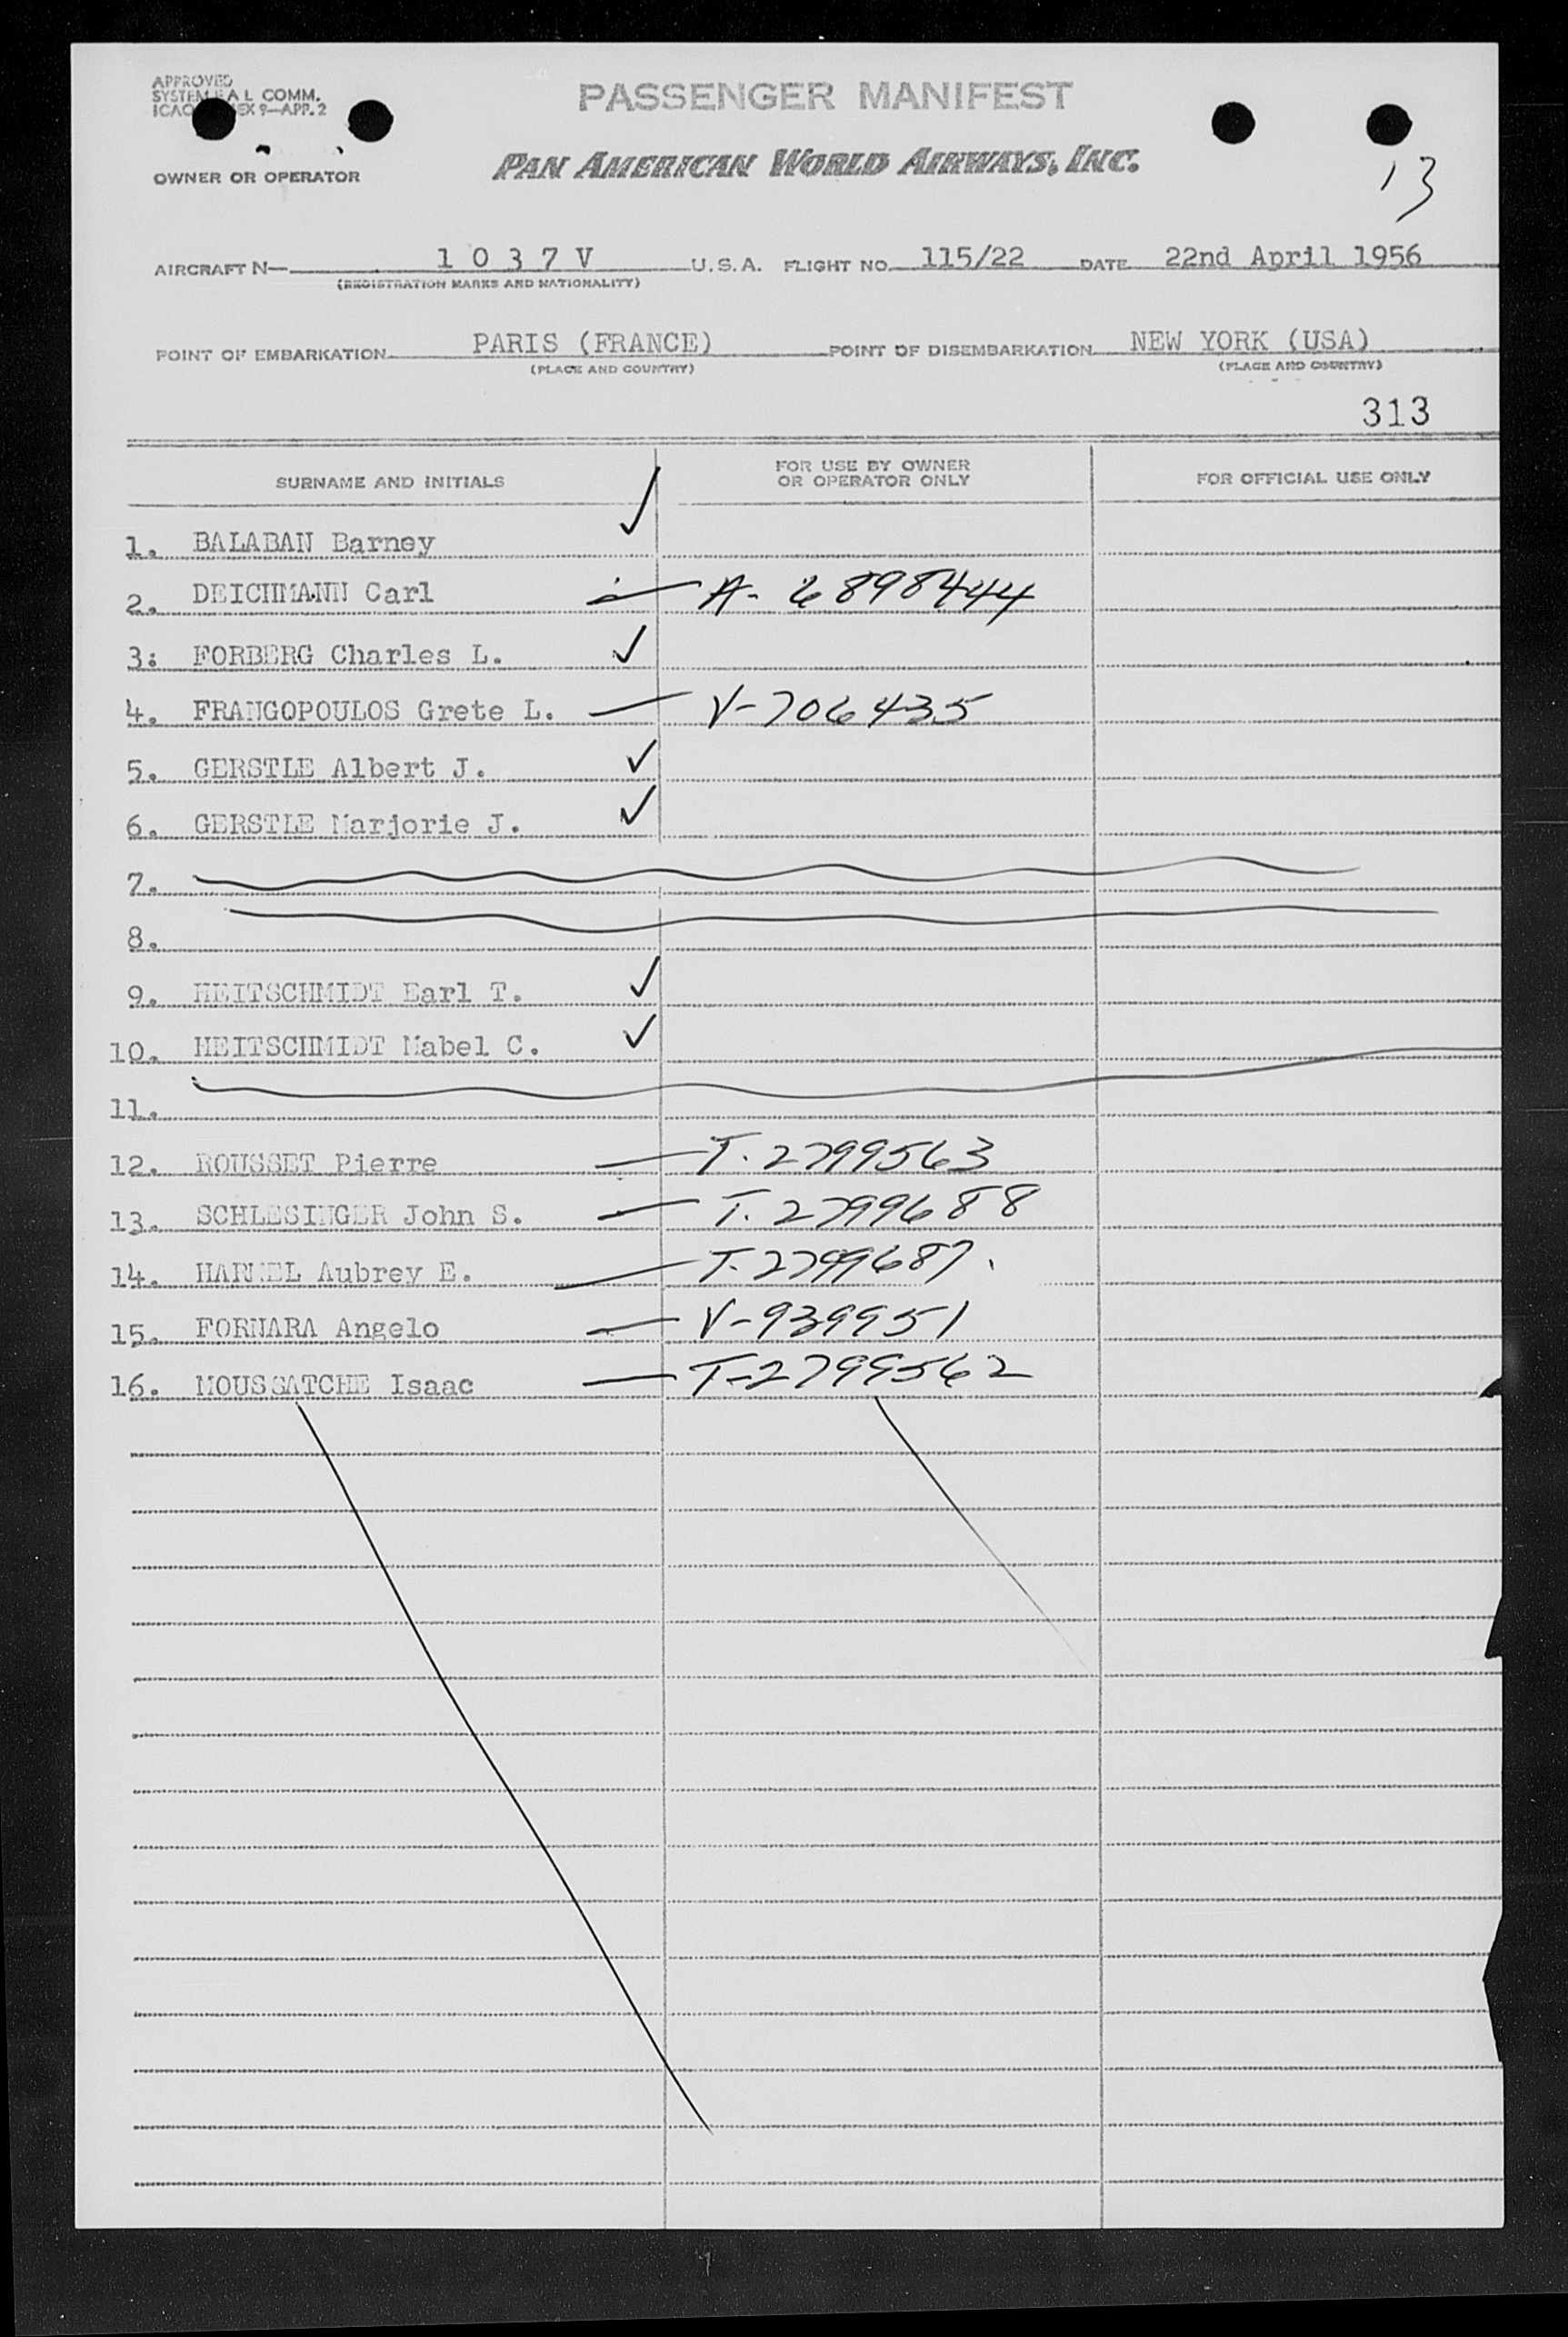 APPROVED
SYSTEM F A L COMM.
ICAO EX 9—APP. 2
PASSENGER MANIFEST
OWNER OR OPERATOR
PAN AMERICAN WORLD AIRWAYS, INC.
13
AIRCRAFT N— 1 0 3 7 V U.S.A. FLIGHT NO. 115/22 DATE 22nd April 1956
(REGISTRATION MARKS AND NATIONALITY)
POINT OF EMBARKATION PARIS (FRANCE) POINT OF DISEMBARKATION NEW YORK (USA)
(PLACE AND COUNTRY) (PLACE AND COUNTRY)
313
SURNAME AND INITIALS ✓ FOR USE BY OWNER OR OPERATOR ONLY FOR OFFICIAL USE ONLY
1. BALABAN Barney
2. DEICHMANN Carl — A- 6898444
3: FORBERG Charles L. ✓
4. FRANGOPOULOS Grete L. — V-706435
5. GERSTLE Albert J. ✓
6. GERSTLE Marjorie J. ✓
7.
8.
9. HEITSCHMIDT Earl T. ✓
10. HEITSCHMIDT Mabel C. ✓
11.
12. ROUSSET Pierre — T. 2799563
13. SCHLESINGER John S. — T. 2799688
14. Aubrey E. — T-2799687.
15. FORNARA Angelo — V-939951
16. MOUSSATCHE Isaac — T-2799562